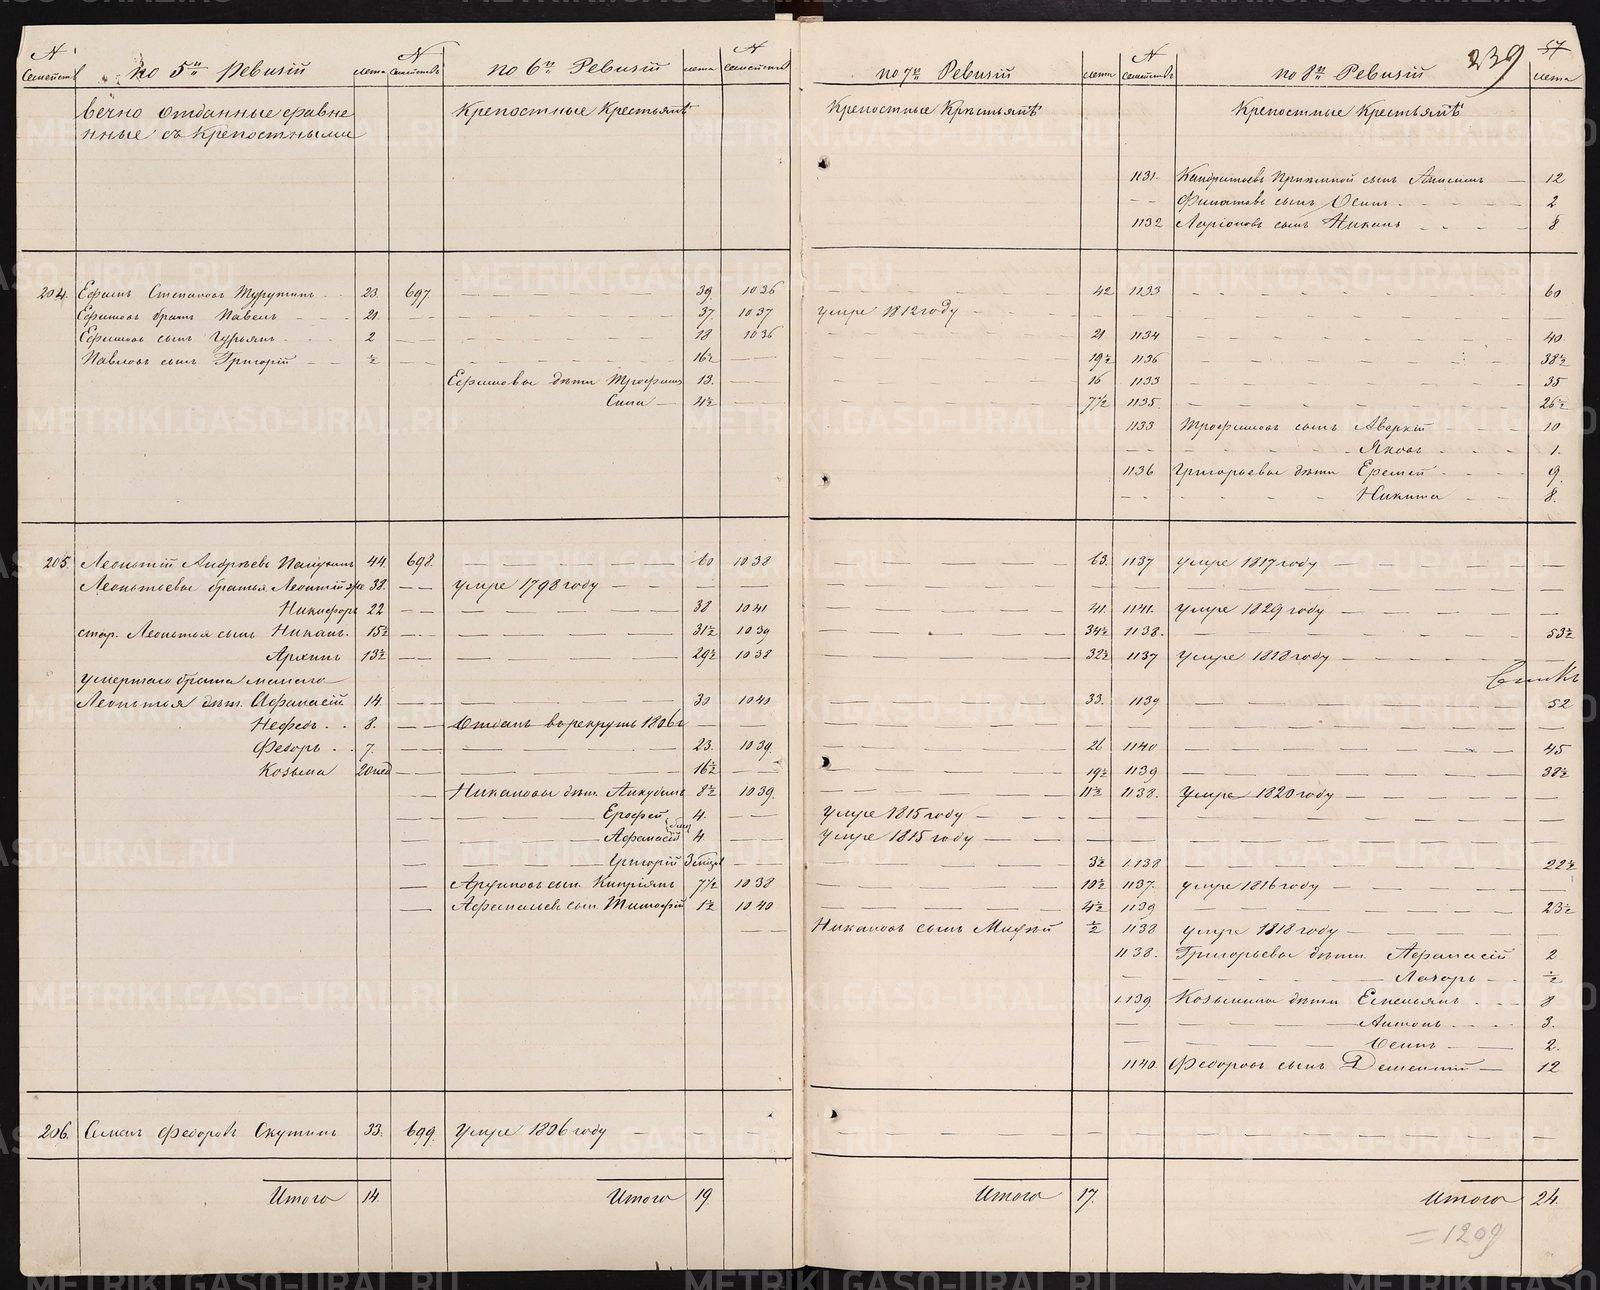 N Семейств по 5й Ревизіи лета N Семействъ по 6й Ревизіи лета N семействъ по 7й Ревизіи лета N семействъ по 8й Ревизіи 239 57 лета
вечно отданные сравне Крепостные Крестьянѣ Крепостные Крестьянѣ Крепостные Крестьянѣ
нные съ крепостными
1131. приемной сынъ 12
сынъ Осипъ 2
1132 Ларіоновъ сынъ Никонъ 8
204. Ефимъ Степановъ 23. 697. 39. 1036 42 1133 60
Ефимовъ братъ Павелъ 21. 37. 1037 умре 1812 году
Ефимовъ сынъ Гурьянъ 2 18 1036 21 1134 40
Павловъ сынъ Григорій ½ 16½ 19½ 1136 38½
Ефимовы дѣти Трофимъ 13. 16 1133 35
Сила 4½ 7½ 1135. 26½
1133 Трофимовъ сынъ Аверкій 10
Яковъ 1.
1136 Григорьевы дѣти Еремей 9.
Никита 8.
205. Леонтій Андрѣевъ 44. 698. 60 1038 63. 1137 умре 1817 году
Леонтьевы братья Леонтій 38. умре 1798 году
Никифоръ 22 38 1041 41. 1141. умре 1829 году
стар. Леонтья сынъ Никонъ. 15½ 31½ 1039 34½ 1138. 53½
Архипъ 13½ 29½ 1038 32½ 1137 умре 1818 году
умершаго брата малаго
Леонтья дѣт. Афанасій 14. 30 1040 33. 1139 52
Нефедъ 8. Отданъ в рекруты 1806
Федоръ 7. 23. 1039. 26 1140 45
Козьма 20 нед 16½ 19½ 1139 38½
Никоновы дѣт. 8½ 1039. 11½ 1138. умре 1820 году
Ерофей 4. умре 1815 году
Афанасій 4 умре 1815 году
Григорій 3½ 1138 22½
Архиповъ сын. Кипріянъ 7½ 1038 10½ 1137. умре 1816 году
Афанасьевъ сын. Тимофей 1½ 1040 4½ 1139 23½
Никоновъ сынъ Михѣй ½ 1138 умре 1818 году
1138. Григорьевы дѣти Афанасій 2
Лазарь ½
1139. Козьмины дѣти Емельянъ 8
Антонъ 3.
Осипъ 2.
1140. Федоровъ сынъ Дементій 12
206. Семенъ Федоровъ Скутинъ 33. 699. умре 1806 году
Итого 14. Итого 19. Итого 17. Итого 24.
=1209
METRIKI.GASO-URAL.RU